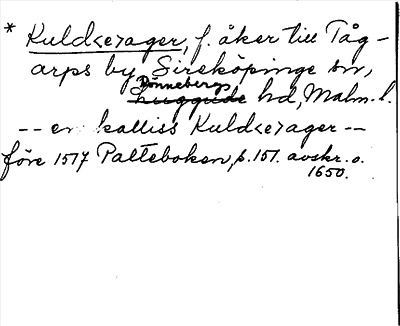 * Kuld<e>ager, f. åker till Tåg-
arps by Sireköpinge sn,
Rönnebergs
Luggude hd, Malm. l.
-- en kalliss Kuld<e>ager --
före 1517 Palteboken, p. 151. avskr. o.
1650.